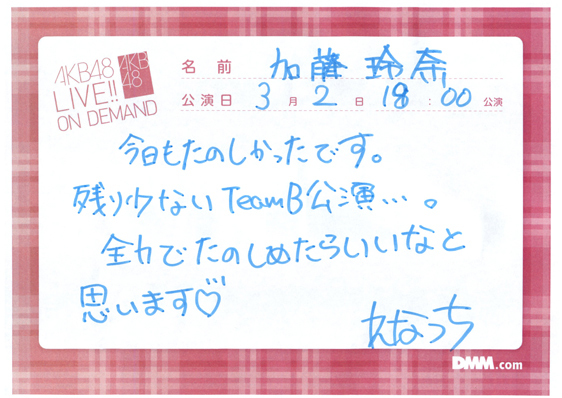 AKB48
LIVE!!
ON DEMAND
AKB
48
名前 加藤 玲奈
公演日 3月 2日 18:00 公演
今日もたのしかったです。
残り少ない TeamB公演…。
全力でたのしめたらいいなと
思います♡
れなっち
DMM.com